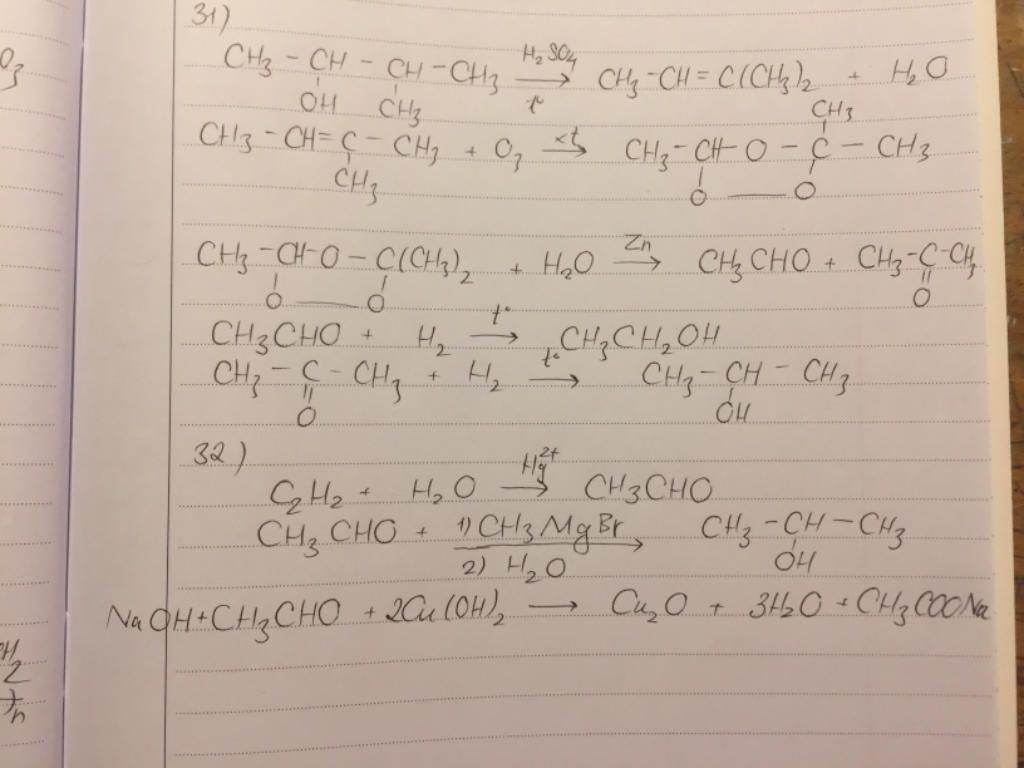 31)
CH₃ - CH - CH - CH₃ H₂SO₄ → t° CH₃ - CH = C(CH₃)₂ + H₂O
OH CH₃ CH₃
CH₃ - CH = C - CH₃ + O₃ → CH₃ - CH - O - C - CH₃
CH₃ O — O
CH₃ - CH - O - C(CH₃)₂ + H₂O Zn → CH₃CHO + CH₃ - C - CH₃
O — O O
CH₃CHO + H₂ t° → CH₃CH₂OH
CH₃ - C - CH₃ + H₂ t° → CH₃ - CH - CH₃
O OH
32)
C₂H₂ + H₂O Hg²⁺ → CH₃CHO
CH₃CHO + 1) CH₃MgBr → CH₃ - CH - CH₃
2) H₂O OH
NaOH + CH₃CHO + 2Cu(OH)₂ → Cu₂O + 3H₂O + CH₃COONa